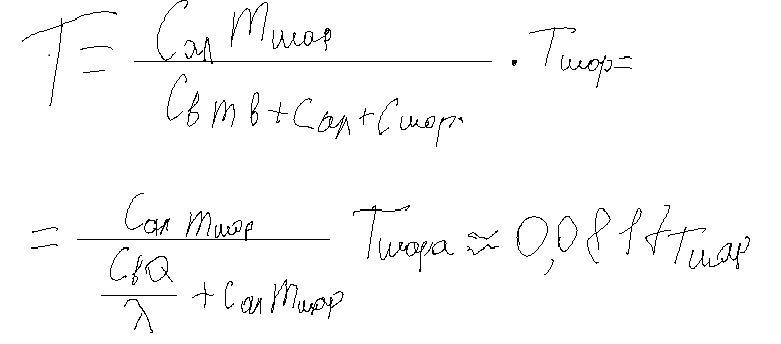 T = (C_ал m_шар) / (C_в m в + C_ал + C_шар.) · T_шор =
= (C_ал m_шар) / (C_в Q / λ + C_ал m_шар) T_шара ≈ 0,0817 T_шар